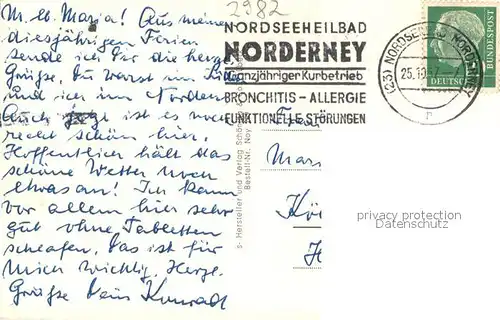 M. lb. Maria! Aus meinen
diesjährigen Ferien
sende ich Dir die herzl.
Grüße, Du warst im Süden
und ich im Norden.
Auch jetzt ist es noch
recht schön hier.
Hoffentlich hält das
schöne Wetter noch
etwas an! Ich kann
vor allem hier sehr
gut ohne Tabletten
schlafen, das ist für
mich wichtig. Herzl.
Grüße Dein Konrad
2982
NORDSEEHEILBAD
NORDERNEY
Ganzjähriger Kurbetrieb
BRONCHITIS - ALLERGIE
FUNKTIONELLE STÖRUNGEN
(23) NORDSEEBAD NORDERNEY
25.10.
n
DEUTSCHE
BUNDESPOST
s- Hersteller und Verlag Schöning
Bestell-Nr. Noy
Frau
Mar
Kö
H
privacy protection
Datenschutz